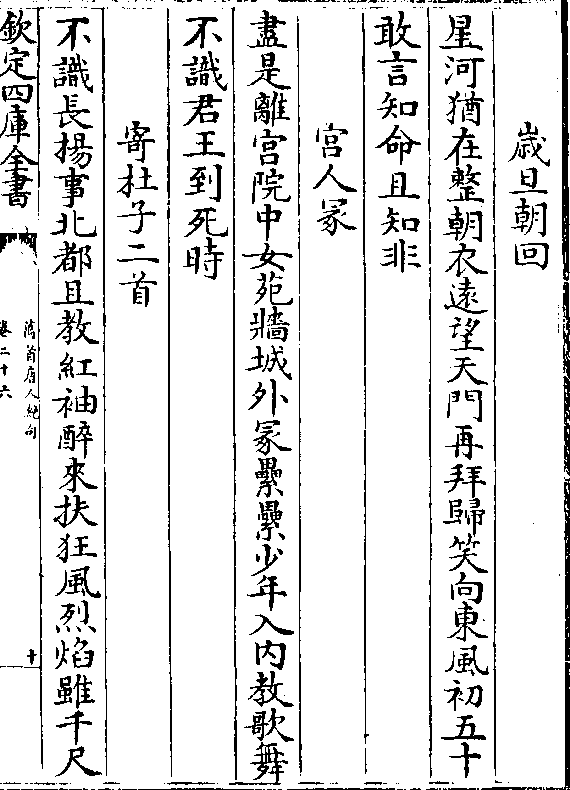 歳旦朝回
星河猶在整朝衣遠望天門再拜歸笑向東風初五十
敢言知命且知非
宫人冡
盡是離宫院中女苑牆城外冡纍纍少年入内教歌舞
不識君王到死時
寄杜子二首
不識長楊事北都且教紅袖醉來扶狂風烈焰雖千尺
欽定四庫全書
萬首唐人絶句
卷二十六
十